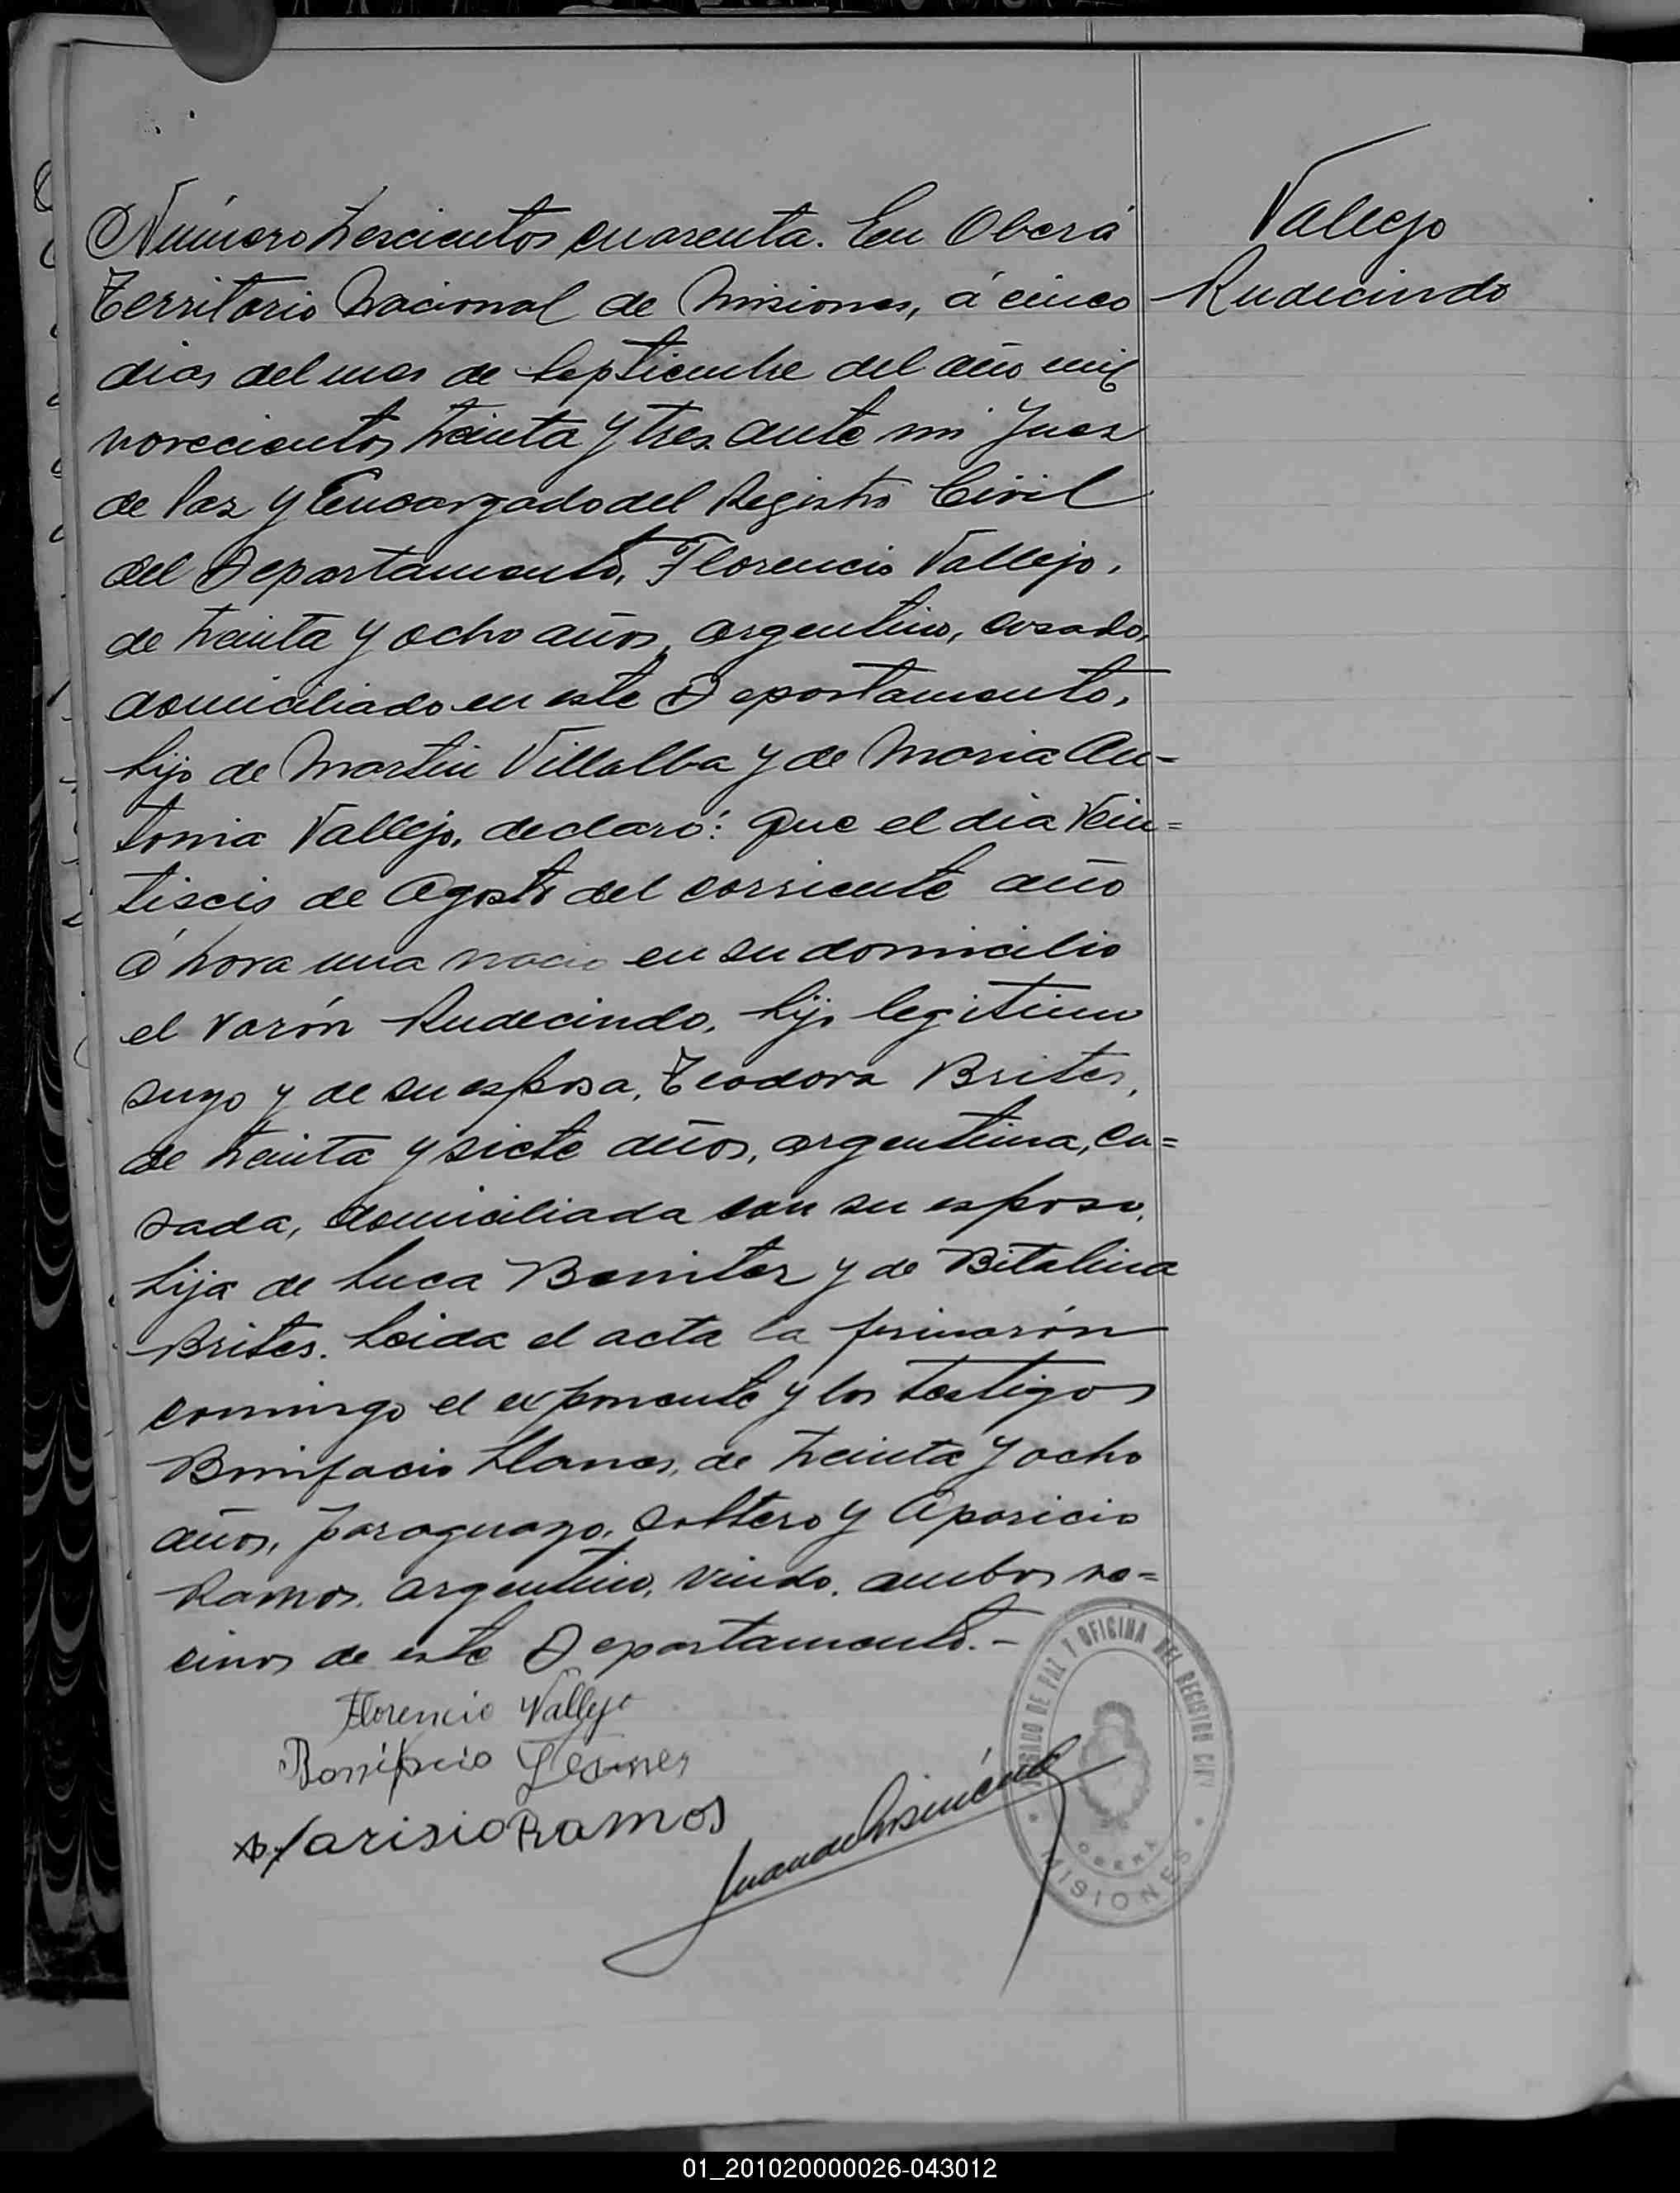 Vallejo
Rudecindo
Número trescientos cuarenta. En Oberá
Territorio Nacional de Misiones, á cinco
dias del mes de Septiembre del año mil
novecientos treinta y tres ante mi Juez
de Paz y Encargado del Registro Civil
del Departamento, Florencio Vallejo,
de treinta y ocho años, argentino, casado,
domiciliado en este Departamento,
hijo de Martin Villalba y de Maria An-
tonia Vallejo, declaró: Que el dia Vein=
tiseis de Agosto del corriente año
á hora una nacio en su domicilio
el varón Rudecindo, hijo legitimo
suyo y de su esposa, Teodora Brites,
de treinta y siete años, argentina, ca=
sada, domiciliada con su esposo,
hija de Luca Benitez y de Bitalina
Brites. Leida el acta la firmarón
conmigo el exponente y los testigos
Bonifacio Llanes, de treinta y ocho
años, paraguayo, soltero y Aparicio
Ramos, argentino, viudo, ambos ve=
cinos de este Departamento.-
Florencio Vallejo
Bonifacio
Ramos
JUZGADO DE PAZ Y OFICINA DEL REGISTRO CIVIL
OBERA
MISIONES
01_201020000026-043012